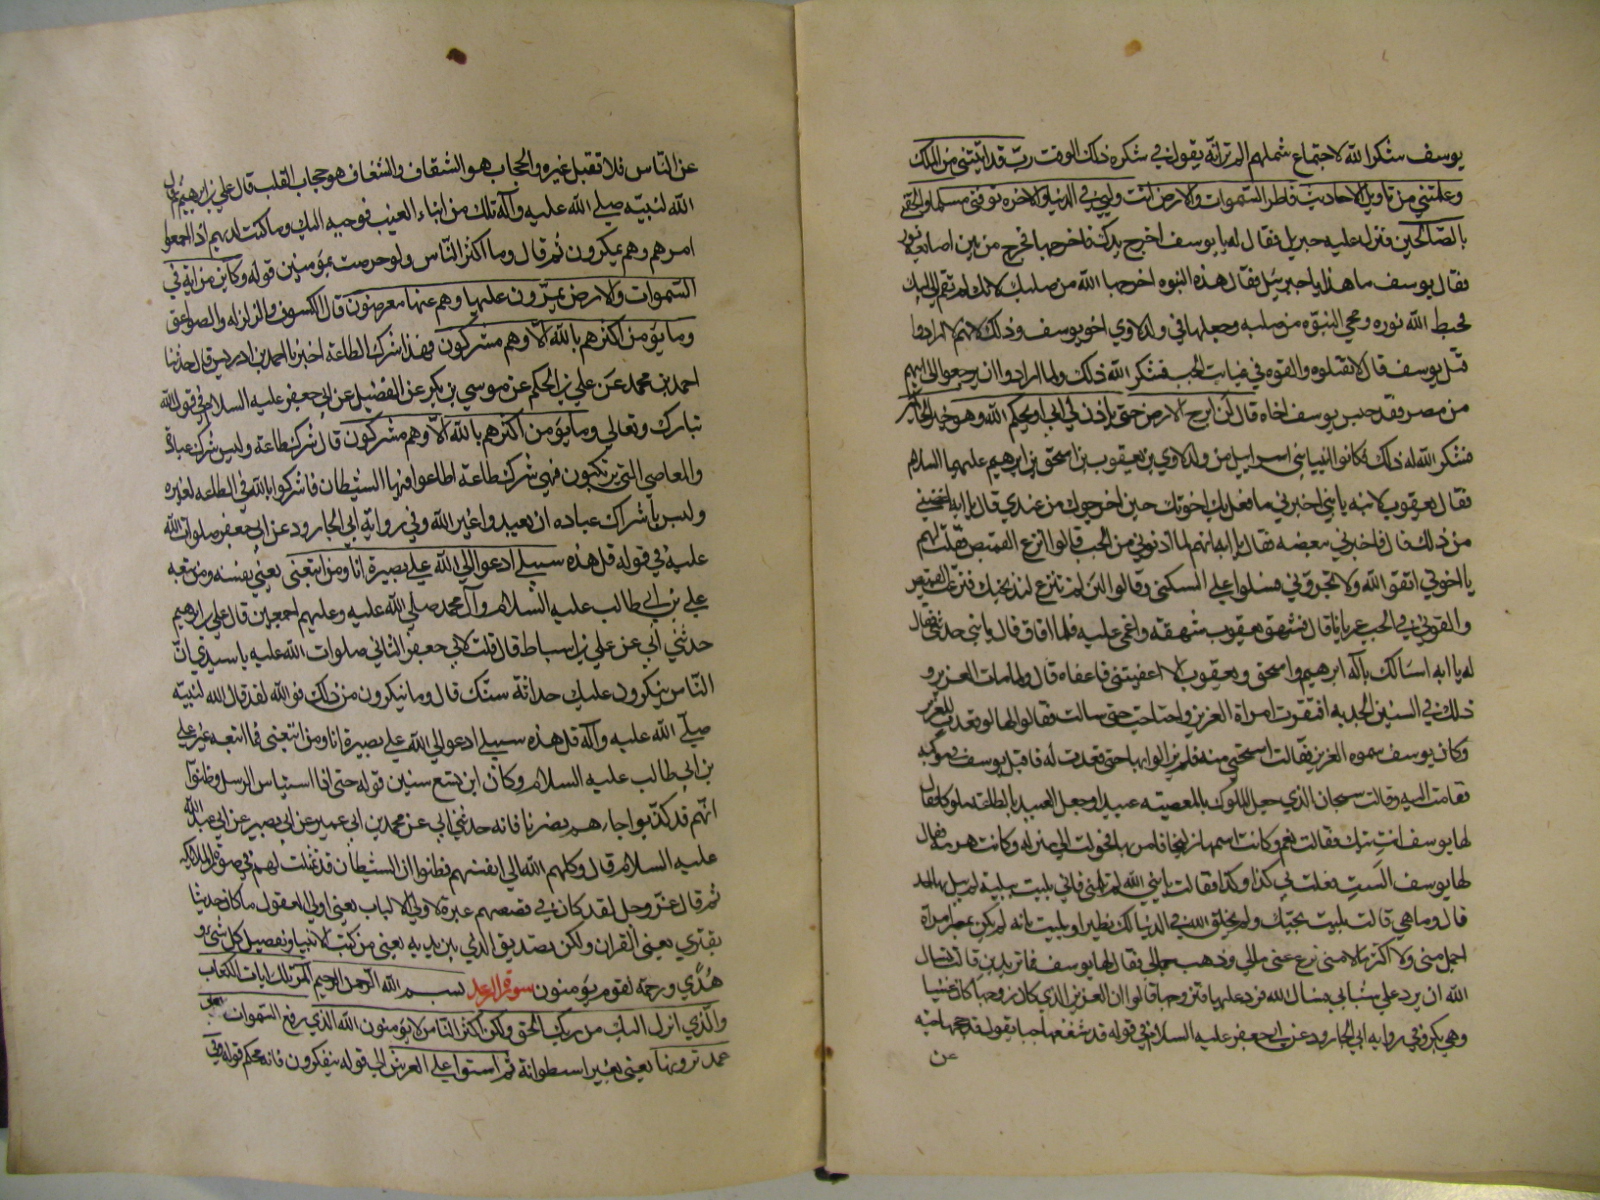 يوسف شكرا لله لاجتماع شملهم الم ترانه يقول في شكره ذلك الوقت رب قد اتيتني من الملك
وعلمتني من تاويل الاحاديث فاطر السموات والارض انت وليي في الدنيا والاخره توفني مسلما والحقني
بالصالحين فنزل عليه جبريل فقال له يا يوسف اخرج يدك فاخرجها فخرج من بين اصابعه نور
فقال يوسف ما هذا يا جبرئيل فقال هذه النبوه اخرجها الله من صلبك لانك لم تقم الى ابيك
فحبط الله نوره ومحي النبوه من صلبه وجعلها في ولد لاوي اخو يوسف وذلك لانهم لما ارادوا
قتل يوسف قال لا تقتلوه والقوه في غيابت الجب فشكر الله ذلك ولما ارادوا ان يرجعوا الى ابيهم
من مصر وقد حبس يوسف اخاه قال لن ابرح الارض حتى ياذن لي ابي او يحكم الله وهو خير الحاكمين
فشكر الله له ذلك فكانوا انبياء بني اسرايل من ولد لاوي بن يعقوب بن اسحق بن ابرهيم عليهما السلام
فقال يعقوب لابنه يا بني اخبرني ما فعل بك اخوتك حين اخرجوك من عندي قال يا ابه اعفيني
من ذلك قال فاخبرني ببعضه فقال يا ابه انهم لما ادنوني من الجب قالوا انزع القميص فقلت لهم
يا اخوتي اتقو الله ولا تجردوني فسلوا علي السكين وقالوا لئن لم تنزع لنذبحنك فنزعت القميص
والقوني في الجب عريانا قال فشهق يعقوب شهقه واغمي عليه فلما افاق قال يا بني حدثني فقال
له يا ابه اسالك باله ابرهيم واسحق ويعقوب الا اعفيتني فاعفاه قال ولما مات العزيز و
ذلك في السنين الجدبه افتقرت امراة العزيز واحتاجت حتى سالت فقالوا لها لو قعدت للعزيز
وكان يوسف سموه العزيز فقالت استحيي منه فلم يزالوا بها حتى قعدت له فاقبل يوسف في موكبه
فقامت اليه وقالت سبحان الذي جعل الملوك بالمعصيه عبيدا وجعل العبيد بالطاعه ملوكا فقال
لها يوسف انت تيك فقالت نعم وكانت اسمها زليخا فامر بها فحولت الى منزله وكانت هرمه فقال
لها يوسف الست فعلت بي كذا وكذا فقالت يا نبي الله لم تلمني فاني بليت ببلية لم يبل بها احد
قال وما هي قالت بليت بحبك ولم يخلق الله في الدنيا لك نظيرا وبليت بانه لم يكن بمصر امراة
اجمل مني ولا اكثر مالا مني نزع عني مالي وذهب جمالي فقال لها يوسف فما تريدين قالت تسال
الله ان يرد علي شبابي فسال الله فرد عليها فتزوجها قالوا ان العزيز الذي كان زوجها كان عنينا
وهي بكر وفي رواية ابي الجارود عن ابي جعفر عليه السلام في قوله قد شغفها حبا يقول قد حجبها حبه
عن
عن الناس فلا تعقل غيره والحجاب هو الشغاف والشغاف هو حجاب القلب قال علي بن ابرهيم ثم قال
الله لنبيه صلى الله عليه واله تلك من انباء الغيب نوحيه اليك وما كنت لديهم اذ اجمعوا
امرهم وهم يمكرون ثم قال وما اكثر الناس ولو حرصت بمؤمنين قوله وكاين من اية في
السموات والارض يمرون عليها وهم عنها معرضون قال الكسوف والزلزله والصواعق
وما يؤمن اكثرهم بالله الا وهم مشركون فهذا شرك الطاعة اخبرنا احمد بن ادريس قال حدثنا
احمد بن محمد عن علي بن الحكم عن موسى بن بكر عن الفضيل عن ابي جعفر عليه السلام في قول الله
تبارك وتعالى وما يؤمن اكثرهم بالله الا وهم مشركون قال شرك طاعة وليس شرك عبادة
والمعاصي التي يرتكبون فهي شرك طاعة اطاعوا فيها الشيطان فاشركوا بالله في الطاعه لغيره
وليس باشراك عباده ان يعبدوا غير الله وفي رواية ابي الجارود عن ابي جعفر صلوات الله
عليه في قوله قل هذه سبيلي ادعو الى الله على بصيرة انا ومن اتبعني يعني نفسه ومن تبعه
علي بن ابي طالب عليه السلام وآل محمد صلى الله عليه وعليهم اجمعين قال علي بن ابرهيم
حدثني ابي عن علي بن اسباط قال قلت لابي جعفر الثاني صلوات الله عليه يا سيدي ان
الناس ينكرون عليك حداثة سنك قال وما ينكرون من ذلك فوالله لقد قال الله لنبيه
صلى الله عليه وآله قل هذه سبيلي ادعو الى الله على بصيرة انا ومن اتبعني فما اتبعه غير علي
بن ابي طالب عليه السلام وكان ابن تسع سنين قوله حتى اذا استياس الرسل وظنوا
انهم قد كذبوا جاءهم نصرنا فانه حدثني ابي عن محمد بن ابي عمير عن ابي بصير عن ابي عبد الله
عليه السلام قال وكلهم الله الى انفسهم فظنوا ان الشيطان قد تمثلت لهم في صورة الملائكه
ثم قال عز وجل لقد كان في قصصهم عبرة لاولي الالباب يعني اولي العقول ما كان حديثا
يفتري يعني القران ولكن تصديق الذي بين يديه يعني من كتب الانبيا وتفصيل كل شيء و
هدي ورحمة لقوم يؤمنون سورة الرعد بسم الله الرحمن الرحيم المر تلك ايات الكتاب
والذي انزل اليك من ربك الحق ولكن اكثر الناس لا يؤمنون الله الذي رفع السموات بغير
عمد ترونها يعني بغير اسطوانة ثم استوا على العرش الى قوله يتفكرون فانه محكم قوله وفي